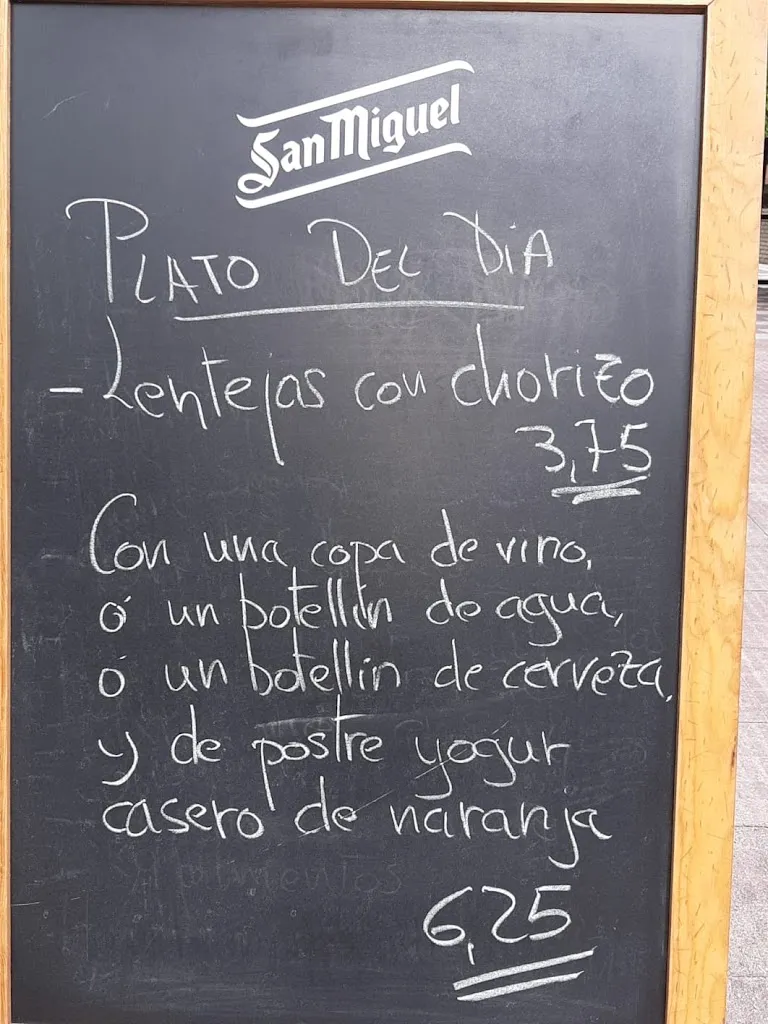 San Miguel
PLATO DEL DÍA
- Lentejas con chorizo
3,75
Con una copa de vino,
ó un botellín de agua,
ó un botellín de cerveza,
y de postre yogur
casero de naranja
6,25